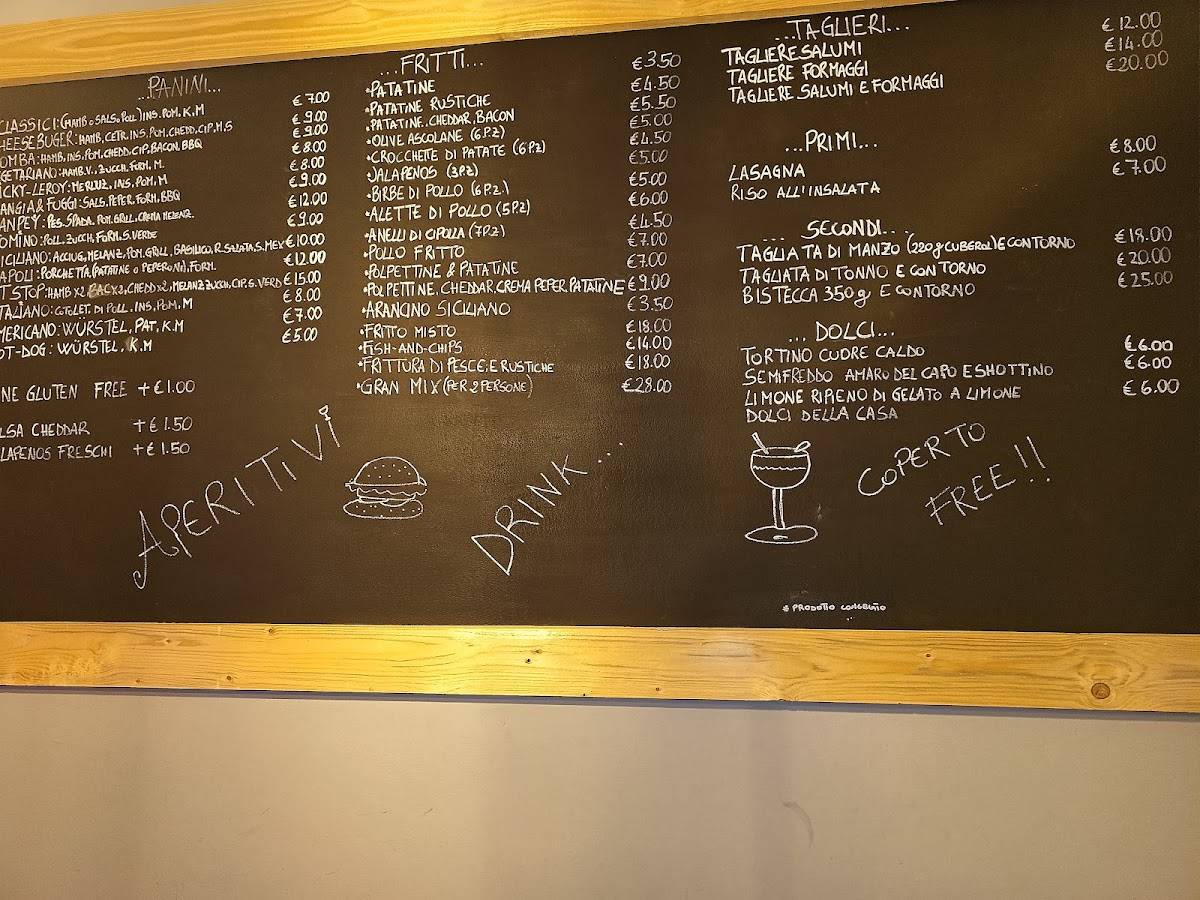 ...PANINI...
CLASSICI: (HAMB O SALS. POLL) INS. POM. K, M €7.00
HEESEBUGER: HAMB, CETR. INS, POM, CHEDD, CIP, M, S €9.00
OMBA: HAMB, INS, POM, CHEDD, CIP, BACON, BBQ €9.00
EGETARIANO: HAMB.V., ZUCCH, FORM. M. €8.00
ICKY-LEROY: MERLUZ, INS, POM, M €8.00
ANGIA & FUGGI: SALS, PEPER, FORM, BBQ €9.00
ANPEY: PES. SPADA, POM. GRILL, CREMA MELENZ. €12.00
OMINO: POLL. ZUCCH, FORM, S. VERDE €9.00
ICILIANO: ACCIUG, MELANZ, POM. GRILL, BASILICO, R. SALATA, S. MEX €10.00
APOLI: PORCHETTA, (PATATINE O PEPERONI), FORM. €12.00
T STOP: HAMB X2, BAC X2, CHEDD X2, MELANZ ZUCCH, CIP, S. VERD €15.00
TALIANO: COTOLET. DI POLL. INS, POM, M €8.00
MERICANO: WÜRSTEL, PAT, K.M €7.00
OT-DOG: WÜRSTEL, K.M €5.00
NE GLUTEN FREE +€1.00
LSA CHEDDAR +€1.50
LAPENOS FRESCHI +€1.50
...FRITTI...
•PATATINE €3.50
•PATATINE RUSTICHE €4.50
•PATATINE..CHEDDAR, BACON €5.50
•OLIVE ASCOLANE (6 P.Z) €5.00
•CROCCHETTE DI PATATE (6 P.Z) €4.50
•JALAPENOS (3P.Z) €5.00
•BIRBE DI POLLO (6 P.Z.) €5.00
•ALETTE DI POLLO (5 P.Z) €6.00
•ANELLI DI CIPOLLA (7P.Z) €4.50
•POLLO FRITTO €7.00
•POLPETTINE & PATATINE €7.00
•POLPETTINE, CHEDDAR, CREMA PEPER, PATATINE €9.00
•ARANCINO SICILIANO €3.50
•FRITTO MISTO €18.00
•FISH-AND-CHIPS €14.00
•FRITTURA DI PESCE; E RUSTICHE €18.00
•GRAN MIX (PER 2 PERSONE) €28.00
...TAGLIERI...
TAGLIERE SALUMI €12.00
TAGLIERE FORMAGGI €14.00
TAGLIERE SALUMI E FORMAGGI €20.00
...PRIMI...
LASAGNA €8.00
RISO ALL'INSALATA €7.00
... SECONDI...
TAGLIATA DI MANZO (220g CUBEROL) E CONTORNO €18.00
TAGLIATA DI TONNO E CONTORNO €20.00
BISTECCA 350g E CONTORNO €25.00
... DOLCI...
TORTINO CUORE CALDO €6.00
SEMIFREDDO AMARO DEL CAPO E SHOTTINO €6.00
LIMONE RIPIENO DI GELATO A LIMONE €6.00
DOLCI DELLA CASA
APERITIVI
DRINK...
COPERTO
FREE!!
* PRODOTTO CONGELATO